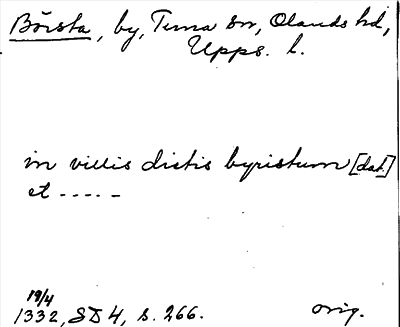 Börsta, by, Tuna sn, Olands hd,
Upps. l.
in villis dictis byristum [dat]
et -----
19/4
1332, SD 4, s. 266. orig.